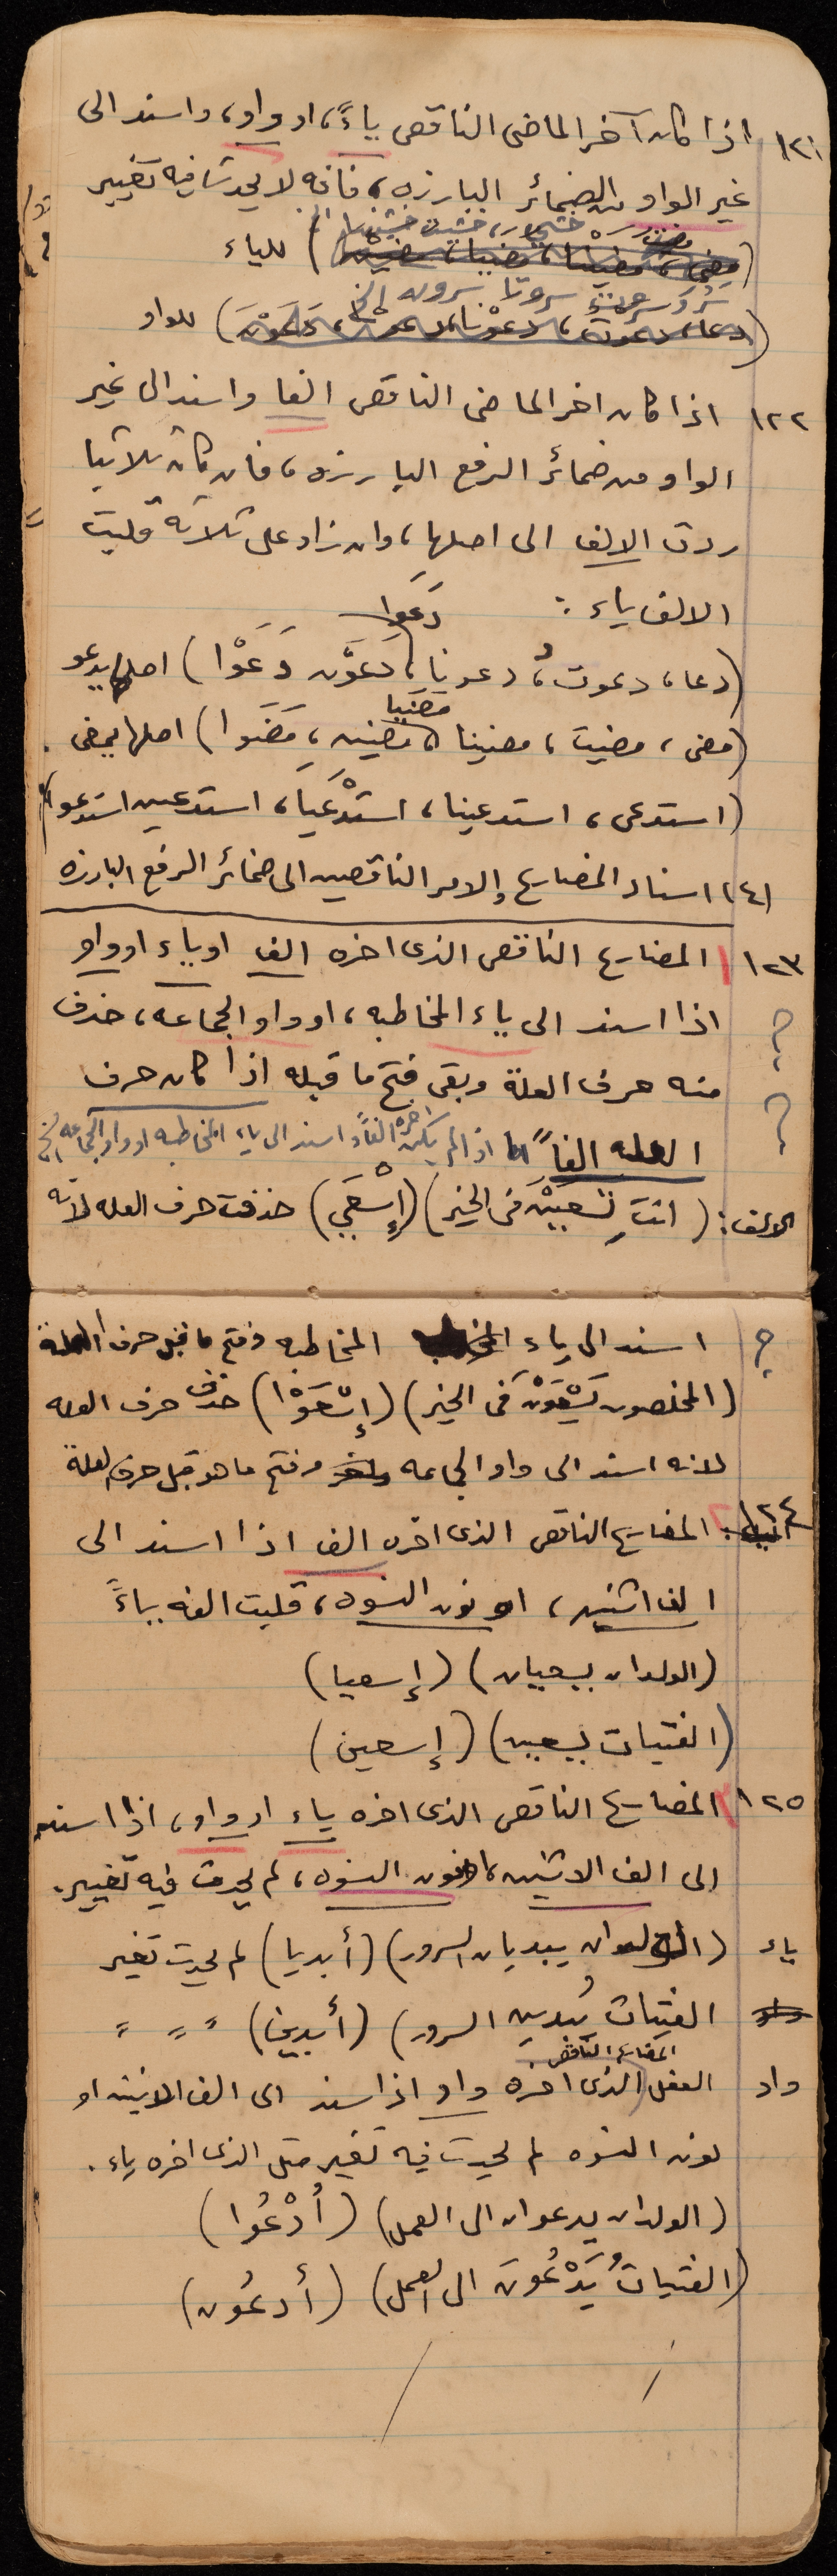 ١٢١ اذا كان آخر الماضى الناقص ياءً، او واو، واسند الى
غير الواو من الضمائر البارزه، فانه لا يحدث فيه تغيير
خشيت خشينا الخ
(مضى، مضينا، مضيا، مضين) للياء
سَرُوَ سروت سرونا سرون الخ
(دعا، دعوت، دعوْنا، دعوا، دَعَوْنَ) للواو
١٢٢ اذا كان اخر الماضى الناقص الفا واسند الى غير
الواو من ضمائر الرفع البارزه، فان كان ثلاثيا
ردت الالف الى اصلها، وان زاد على ثلاثه قلبت
الالف ياء:
دَعَوا
(دعا، دعوت، دعونا، دَعَوْن دَعَوْا) اصلها يدعو
مضَيَا
(مضى، مضيت، مضينا، مضين، مَضَوا) اصلها يمضى
(استدعى، استدعينا، استدْعَيَا، استدعين استدعوا)
١٤) اسناد المضارع والامر الناقصين الى ضمائر الرفع البارزه
١٢٣ المضارع الناقص الذى اخره الف او ياء او واو
اذا اسند الى ياء المخاطبه، او واو الجماعه، حذف
منه حرف العلة وبقى فتح ما قبله اذا كان حرف
العله الفاً اما اذا لم يكن اخره الفاً واسند الى ياء المخاطبه او واو الجماعه
الالف: (انتِ تسْعَيْن فى الخير) (إسْعَي) حذفت حرف العله لانه
اسند الى ياء المخاطبه وفتح ما قبل حرف العلة
(المخلصون يَسْعَوْنَ فى الخير) (إسْعَوْا) حذف حرف العله
لانه اسند الى واو الجماعه وفتح ما هو قبل حرف لعلة
١٢٤ المضارع الناقص الذى اخره الف اذا اسند الى
الف اثنين، او نون النسوه، قلبت الفه ياءً
(الولدان يسعيان) (إسعيا)
(الفتيات يسعين) (إسعين)
١٢٥ المضارع الناقص الذى اخره ياء او واو، اذا اسند
الى الف الاثنين، او نون النسوه، لم يحدث فيه تغيير.
ياء (الولدان يبديان السرور) (أبديا) لم يحدث تغير
الفتيات يُبدين السرور) (أبدين) " " "
المضارع الناقص
واو الفعل (الذى اخره واو اذا سند الى الف الاثنين او
نون النسوه لم يحدث فيه تغير مثل الذى اخره ياء.
(الولدان يدعوان الى العمل) (اُدْعُوا)
(الفتياتُ يَدْعُونَ الى العمل) (أدعُون)